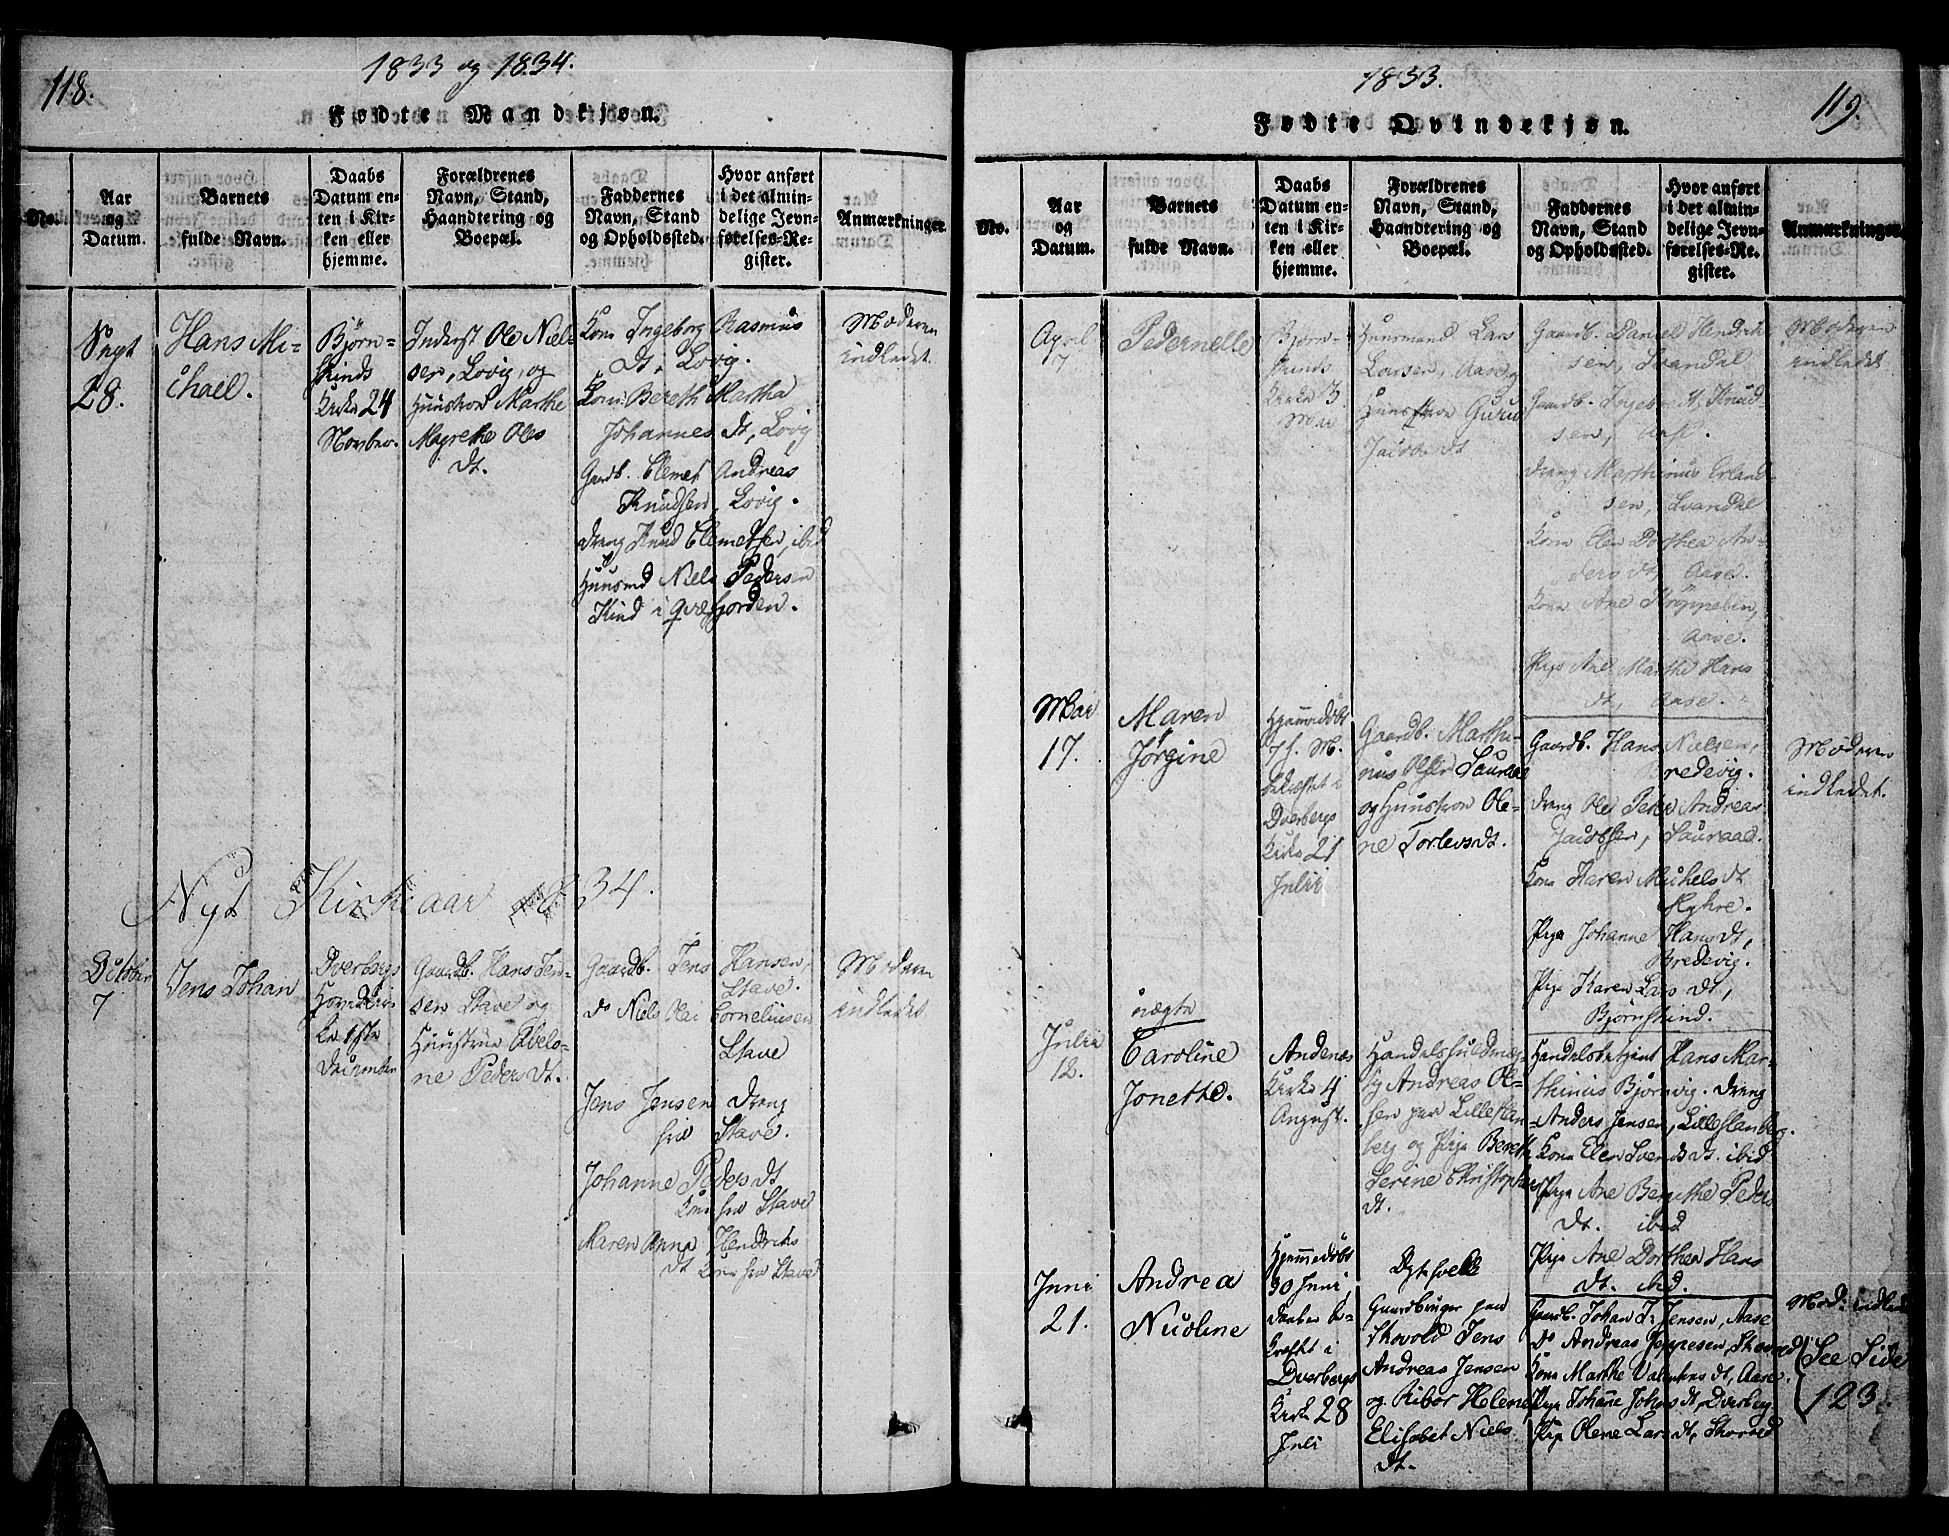 118.
1833 og 1834.
Fødte Mandkjøn.
No.
Aar
og
Datum.
Barnets
fulde Navn.
Daabs
Datum en-
ten i Kir-
ken eller
hjemme.
Forældrenes
Navn, Stand,
Haandtering og
Boepæl.
Faddernes
Navn, Stand
og Opholdssted.
Hvor anført
i det almin-
delige Jevn-
førelses-Re-
gister.
Anmærkninger.
28.
Hans Mi-
chael.
Bjørn-
skinds
Kirke 24
Novbr.
Inderst Ole Niel-
sen, Lovig, og
Huustroe Marthe
Magrethe Oles
dt.
Kone Ingeborg Rasmus
dt, Lovig.
Kone Bereth Martha
Johannes dt, Lovig
Gaardb. Clemet Andreas
Knudsen, Lovig.
Dreng Knud Clemetsen, ibid
Huusmd Niels Pedersen
Kind i Qvæfjorden.
Moderen
indledet.
Nyt Kirkeaar 1834.
October
7
Jens Johan
Dverbergs
Hovedkir
ke 1ste
Gaardb. Hans Jen-
sen Stave og
Huustrue Abelo-
ne Peders dt.
Gaardb. Jens Hansen,
Stave.
do Niels Corneliusen
Stave
Jens Jensen dreng
fra Stave.
Johanne Peders dt
Kone fra Stave
Maren Anna Hendriks
dt Kone fra Stave
Moderen
indledet.
1833.
119.
Fødte Qvindekjøn.
No.
Aar
og
Datum.
Barnets
fulde Navn.
Daabs
Datum en-
ten i Kir-
ken eller
hjemme.
Forældrenes
Navn, Stand,
Haandtering og
Boepæl.
Faddernes
Navn, Stand
og Opholdssted.
Hvor anført
i det almin-
delige Jevn-
førelses-Re-
gister.
Anmærkninger.
April
7
Pedernelle
Bjørn-
skinds
Kirke 3
Mai
Huusmand Lars
Larsen, Aase og
Huustroe Guru
Jacobs dt
Gaardb. Daniel Hendrik
sen, Svandal
Gaardb. Ingebr. Knud-
sen,
dreng Marthinus Erland-
sen,
Kone Elen Dorthea An-
ders dt, Aase.
Kone Ane
Aase.
Pige Ane Marthe Hans
dt, Aase.
Moderen
indledet
Mai
17.
Maren
Jørgine
Hjemmedøbt
7 f. M.
bekræftet i
Dverbergs
Kirke 21
Julii
Gaardb. Marthi-
nus Olsen Sauraae
og Huustroe Ole-
ne Torlevs dt.
Gaardb. Hans Nielsen,
Bredevig.
Dreng Ole Peter Andreas
Jacobsen, Sauraae.
Kone Karen Michels dt
Myhre.
Pige Johanne Hans dt,
Bredevig.
Pige Karen Lars dt,
Bjørnskind.
Moderen
indledet.
Julii
12.
uægte
Caroline
Jonette.
Andenæs
Kirke 4
August.
Andreas Ol-
sen paa Lilleslan-
berg og Pige Bereth
Serine Christophers
dt.
Handelsbetjent Hans Mar-
thinus Bjørnvig. Dreng
Anders Jensen, Lilleslanberg.
Kone Elen Svends dt. ibid
Pige Ane Berethe Peders
dt. ibid
Pige Ane Dorthea Hans
dt. ibid.
Juni
21.
Andrea
Nicoline
Hjemmedøbt
30 Juni,
daaben be-
kræftet i
Dverbergs
Kirke 28
Juli
Gaardbruger paa
Skovold Jens
Andreas Jensen
og Ribor Helene
Elisabet Niels
dt.
Gaardb. Johan J. Jensen, Aase
do Andreas Jeppesen, Skovold
Kone Marthe Valentins dt, Aase.
Pige Johanne Johns dt, Dverberg
Pige Olene Lars dt, Skovold
Mod: indledt
See Side
123.